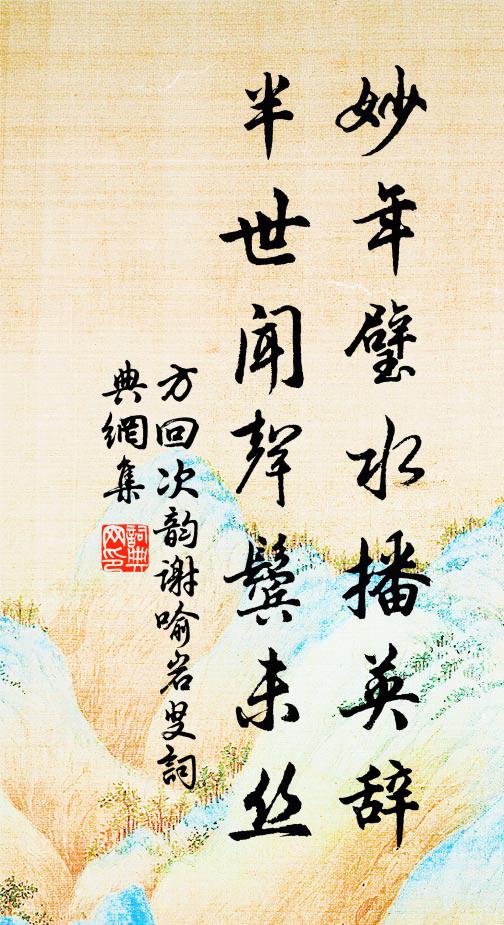 妙年璧水播英辞
半世闻声鬓未丝
方回次韵谢喻岩叟詞
典網集
詞典